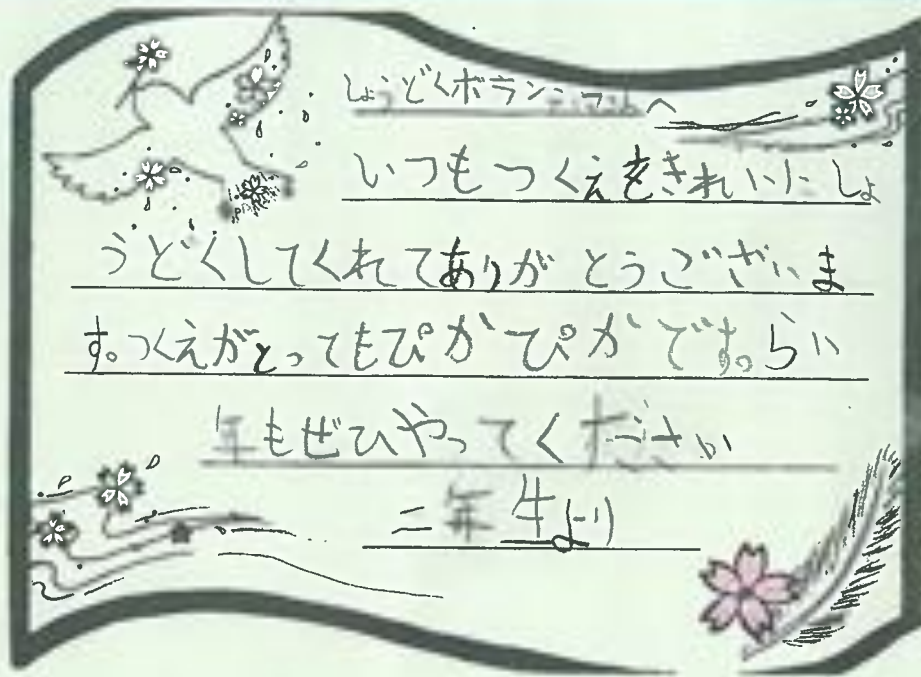 しょうどくボランティアさんへ
いつもつくえをきれいにしょ
うどくしてくれてありがとうございま
す。つくえがとってもぴかぴかです。らい
年もぜひやってください
二年生より